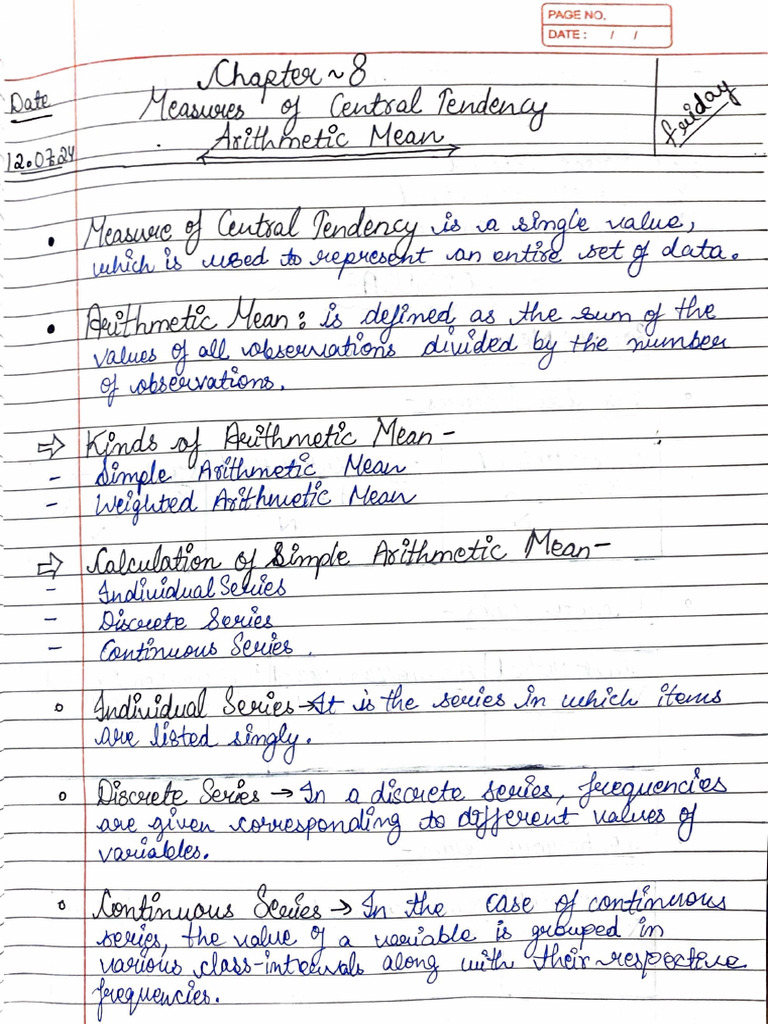 PAGE NO.
DATE: / /
Chapter ~ 8
Date
Measures of Central Tendency
Friday
Arithmetic Mean
12.07.24
• Measure of Central Tendency is a single value,
which is used to represent an entire set of data.
• Arithmetic Mean: is defined as the sum of the
values of all observations divided by the number
of observations.
⇒ Kinds of Arithmetic Mean -
- Simple Arithmetic Mean
- Weighted Arithmetic Mean
⇒ Calculation of Simple Arithmetic Mean -
- Individual Series
- Discrete Series
- Continuous Series.
° Individual Series → It is the series in which items
are listed singly.
° Discrete Series → In a discrete series, frequencies
are given corresponding to different values of
variables.
° Continuous Series → In the case of continuous
series, the value of a variable is grouped in
various class-intervals along with their respective
frequencies.